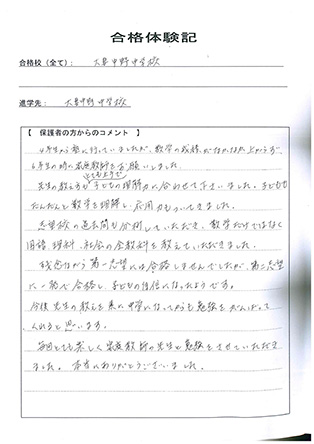 合格体験記
合格校（全て）： 大阜中野中学校
進学先： 大阜中野中学校
【 保護者の方からのコメント 】
4年生から塾に行っていましたが、数学の成績がなかなか上がらず
6年生の時に家庭教師をお願いしました。
とてもよくて
先生の教え方も子どもの理解力に合わせて下さいました。子どもも
だんだんと数学を理解し応用力もついてきました。
志望校の過去問も分析していただき、数学だけではなく
国語、理科、社会の全教科を教えていただきました。
残念ながら第一志望には合格しませんでしたが、第二志望
に一発で合格し、子どもの自信になったようです。
今後先生の教えを基に中学になってからも勉強をがんばって
くれると思います。
毎回とても楽しく家庭教師の先生と勉強をさせていただき
ました。本当にありがとうございました。